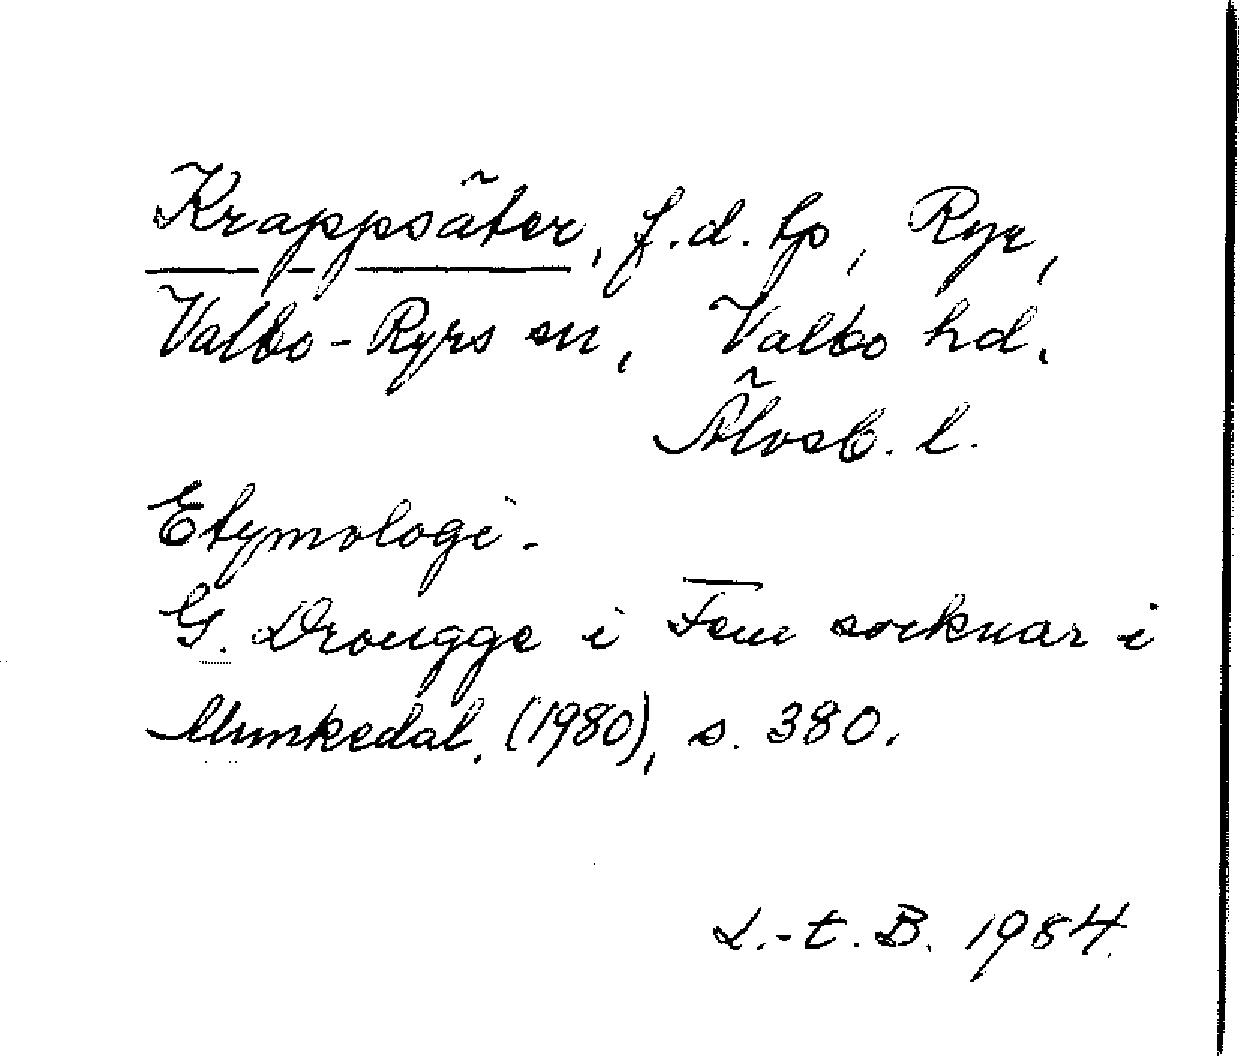 Krappsäter, f.d. tp, Ryr,
Valbo-Ryrs sn, Valbo hd.
Älvsb. l.
Etymologi.
G. Drougge i Fem socknar i
Munkedal, (1980), s. 380.
L.-t. B. 1984.